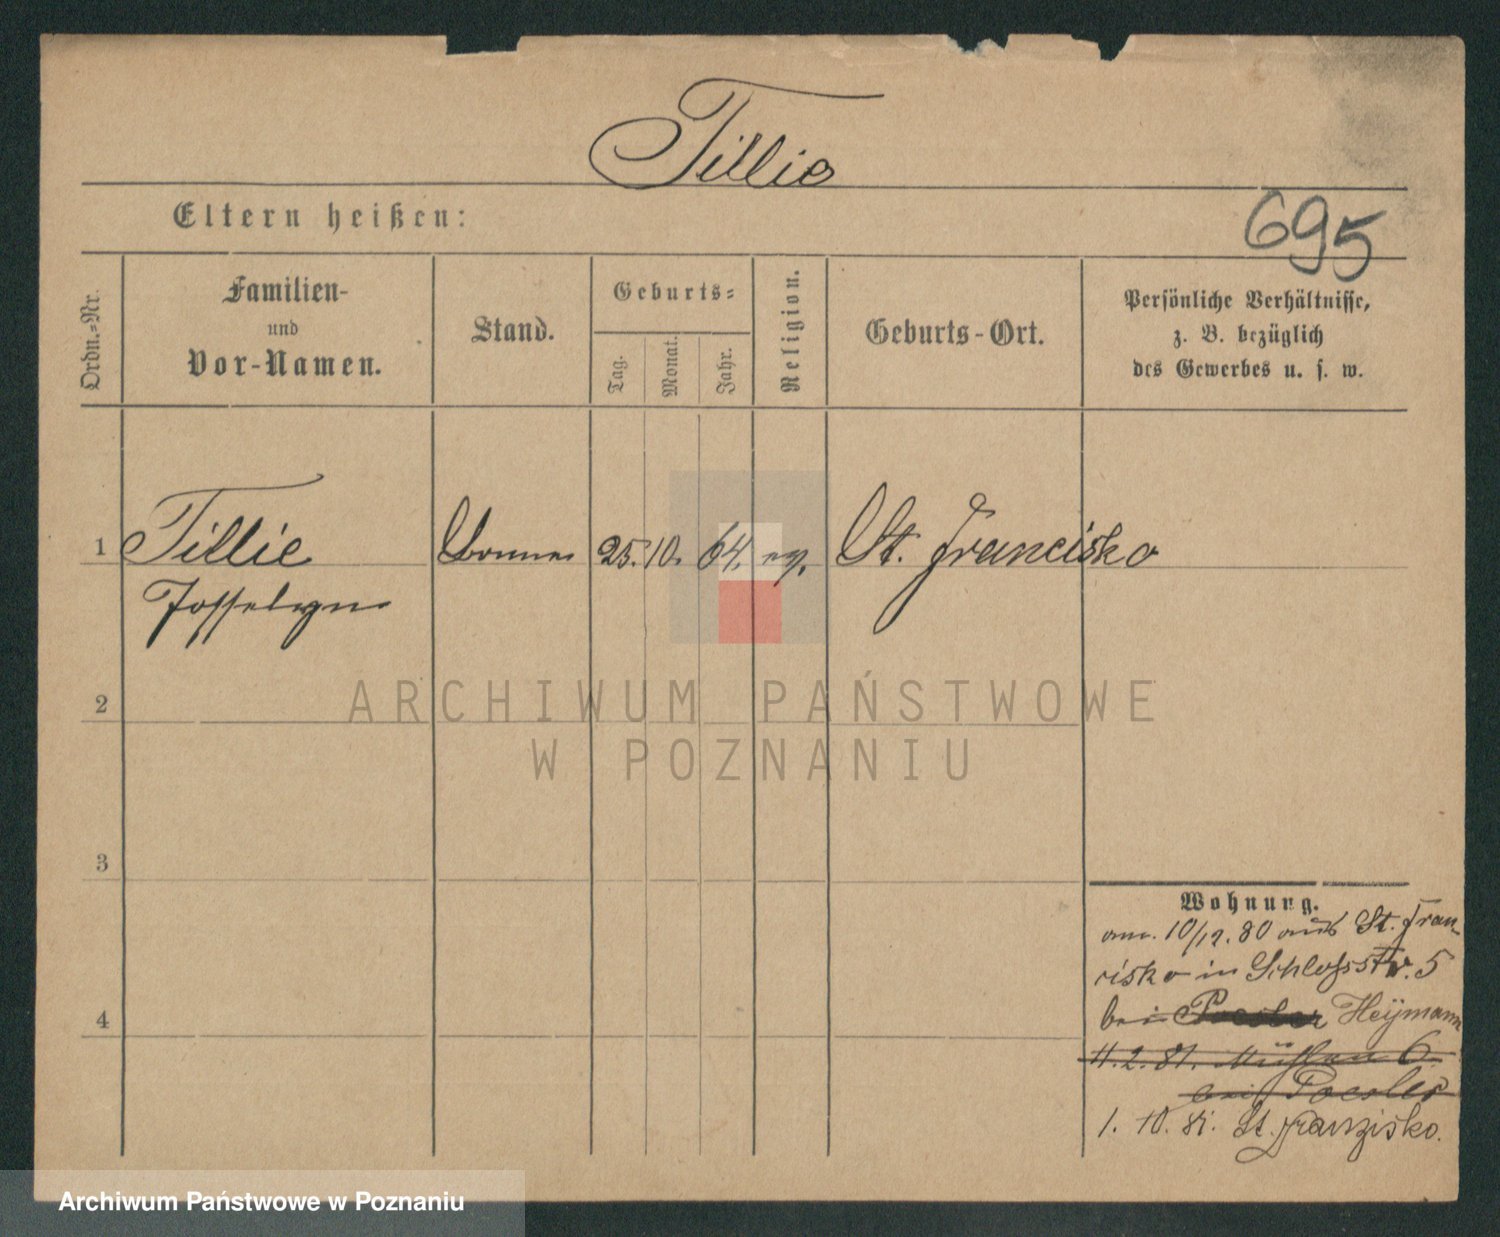 Tillie
Eltern heißen:
695
Ordn.-Nr.
Familien-
und
Vor-Namen.
Stand.
Geburts-
Tag.
Monat.
Jahr.
Religion.
Geburts-Ort.
Persönliche Verhältnisse,
z. B. bezüglich
des Gewerbes u. s. w.
1 Tillie Bonne 25. 10. 64. ev. St. Francisko
Josselyn
2
3
4
ARCHIWUM PAŃSTWOWE
W POZNANIU
Wohnung.
am. 10/12. 80 aus St. Fran-
cisko in Schlossstr. 5
bei Poesler Heÿmann
11. 2. 81. Mühlen 6.
bei Poesler
1. 10. 81. St. Franzisko.
Archiwum Państwowe w Poznaniu